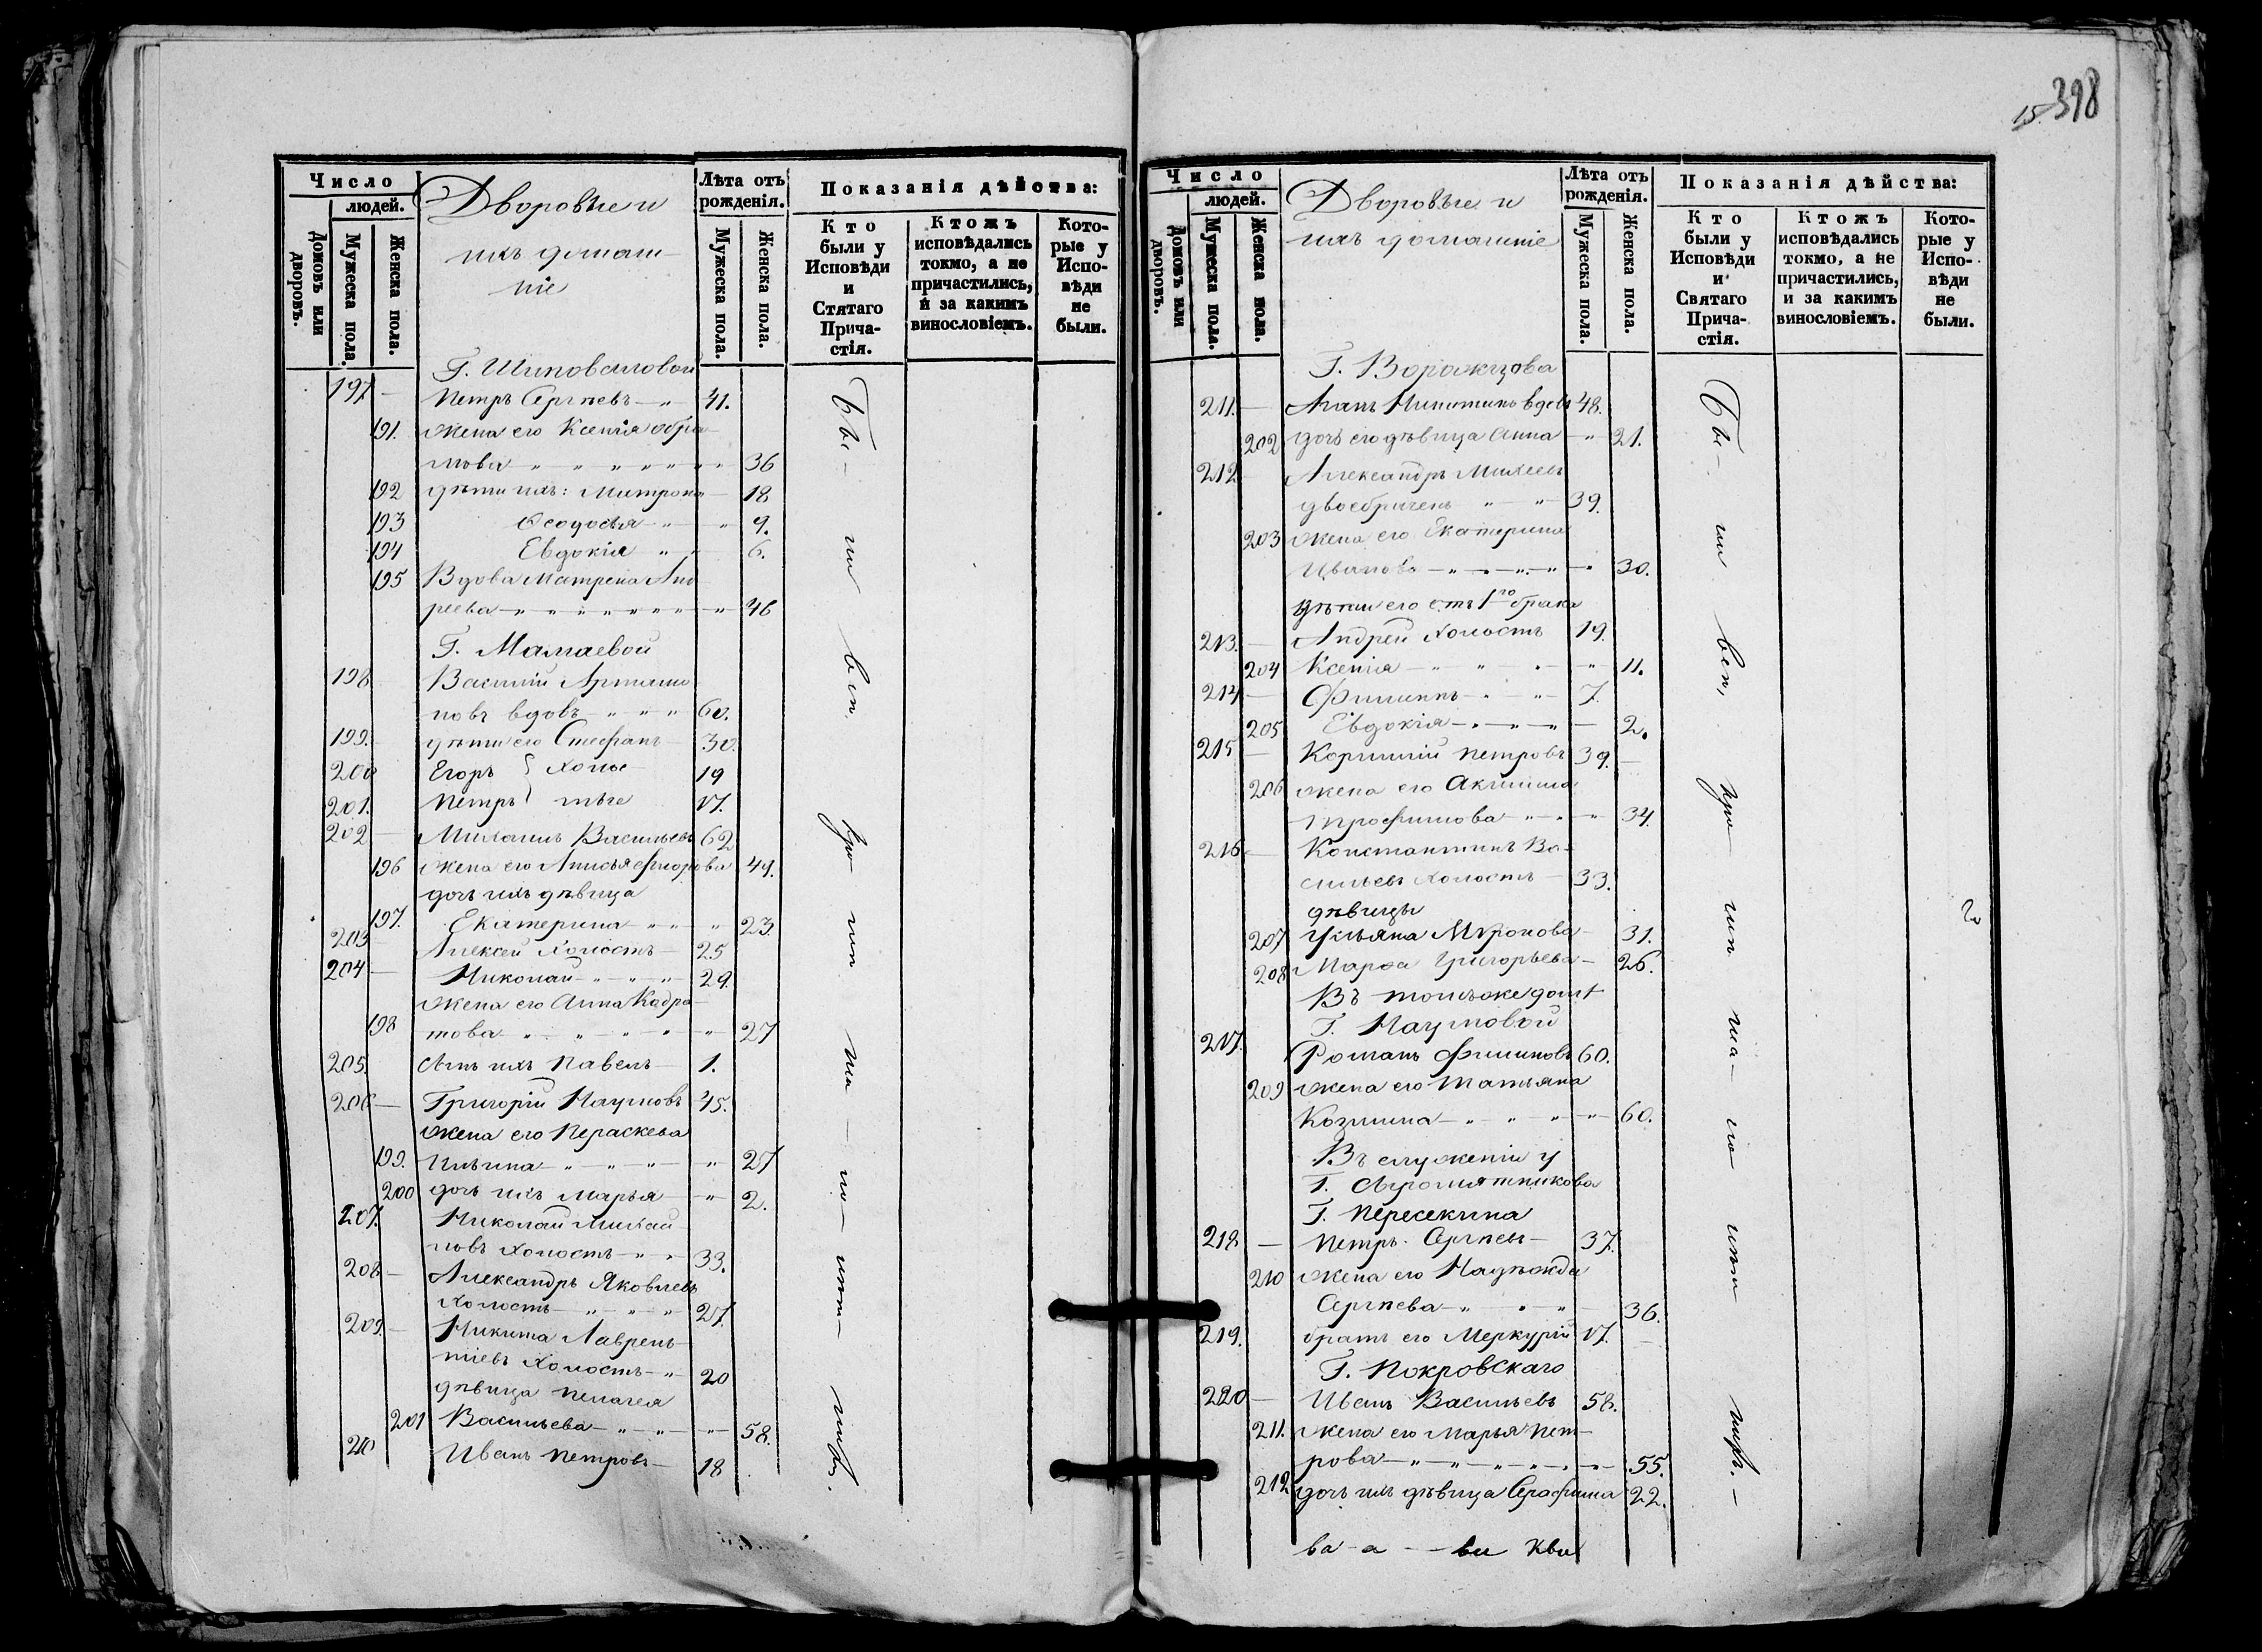 15. 398
Число
людей.
Домовъ или дворовъ.
Мужеска пола.
Женска пола.
Дворовые и
ихъ домаш-
ніе
Лѣта отъ рожденія.
Мужеска пола.
Женска пола.
Показанія дѣйства:
Кто были у Исповѣди и Стятаго Прича-стія.
Ктожъ исповѣдались токмо, а не причастились, и за какимъ винословіемъ.
Кото-рые у Испо-вѣди не были.
Г. Шиповаловой
197 — Петръ Сергѣевъ — 41.
191. жена его Ксенія
мова 36
192 дѣти ихъ: Митрона 18
193 Ѳеодосья 9.
194 Евдокія 6.
195 Вдова Матрена Анд
реева 46
Г. Мамаевой
198 Василій Артамо
новъ вдовъ 60.
199. дѣти его Стефанъ 30.
200 Егоръ } холо- 19
201. Петръ } стые 17.
202 — Михаилъ Васильевъ 62
196 жена его Анисья 49.
дочь ихъ дѣвица
197. Екатерина 23
203 Алексей холостъ 25
204 — Николай 29.
жена его Анна Кодра-
198 това 27
205. Сынъ ихъ Павелъ 1.
206 — Григорій Наумовъ 45.
жена его Параскева
199. Ильина 27
200 дочь ихъ Марья 2.
207. Николай Михай
ловъ холостъ 33.
208 — Александръ Яковлевъ
холостъ 27.
209. — Никита Лаврень-
тіевъ холостъ 20
дѣвица Пелагея
201 Васильева 58.
210 Иванъ Петровъ — 18
Число
людей.
Домовъ или дворовъ.
Мужеска пола.
Женска пола.
Дворовые и
ихъ домашніе
Лѣта отъ рожденія.
Мужеска пола.
Женска пола.
Показанія дѣйства:
Кто были у Исповѣди и Святаго Прича-стія.
Ктожъ исповѣдались токмо, а не причастились, и за какимъ винословіемъ.
Кото-рые у Испо-вѣди не были.
Г. Ворожцова
211. — Никитинъ вдовъ 48.
202 дочь его дѣвица Анна 21.
212 Александръ Михеевъ
двоебрачень 39.
203 жена его Екатерина
Иванова 30.
дѣти его отъ 1го брака
213. — Андрей холостъ 19.
204 Ксенія 11.
214 — Филиппъ 7.
205 Евдокія 2.
215 — Корнилій Петровъ 39.
206 жена его Акилина
Трофимова 34.
216 — Константинъ Ва-
сильевъ холостъ — 33.
дѣвицы
207 Ульяна Миронова 31.
208 Марѳа Григорьева 26.
Въ томъже домѣ
Г. Наумовой
217. Романъ Филиповъ 60.
209 жена его Татьяна
Козмина 60.
Въ служеніи у
Г. Сыромятникова
Г. Пересекина
218 — Петръ Сергѣевъ — 37.
210 жена его Надѣжда
Сергѣева 36.
219. братъ его Меркурій 17.
Г. Покровскаго
220 — Иванъ Васильевъ 58.
211. жена его Марья Пет-
рова 55.
212 дочь ихъ дѣвица Серафима 22.